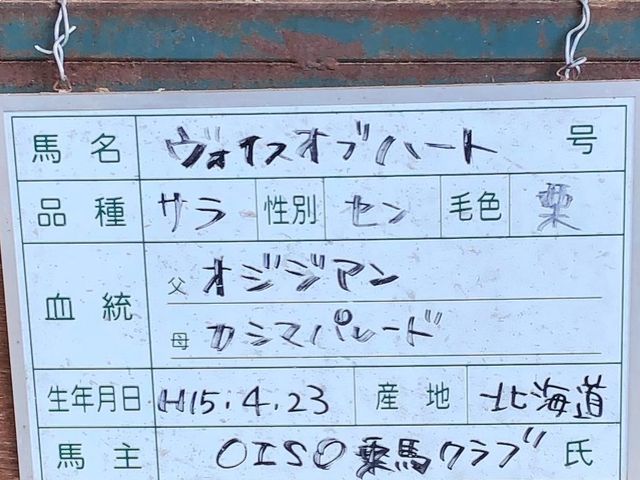 馬名 ヴォイスオブハート 号
品種 サラ 性別 セン 毛色 栗
血統 父 オジジアン
母 カシマパレード
生年月日 H15.4.23 産地 北海道
馬主 OISO乗馬クラブ 氏